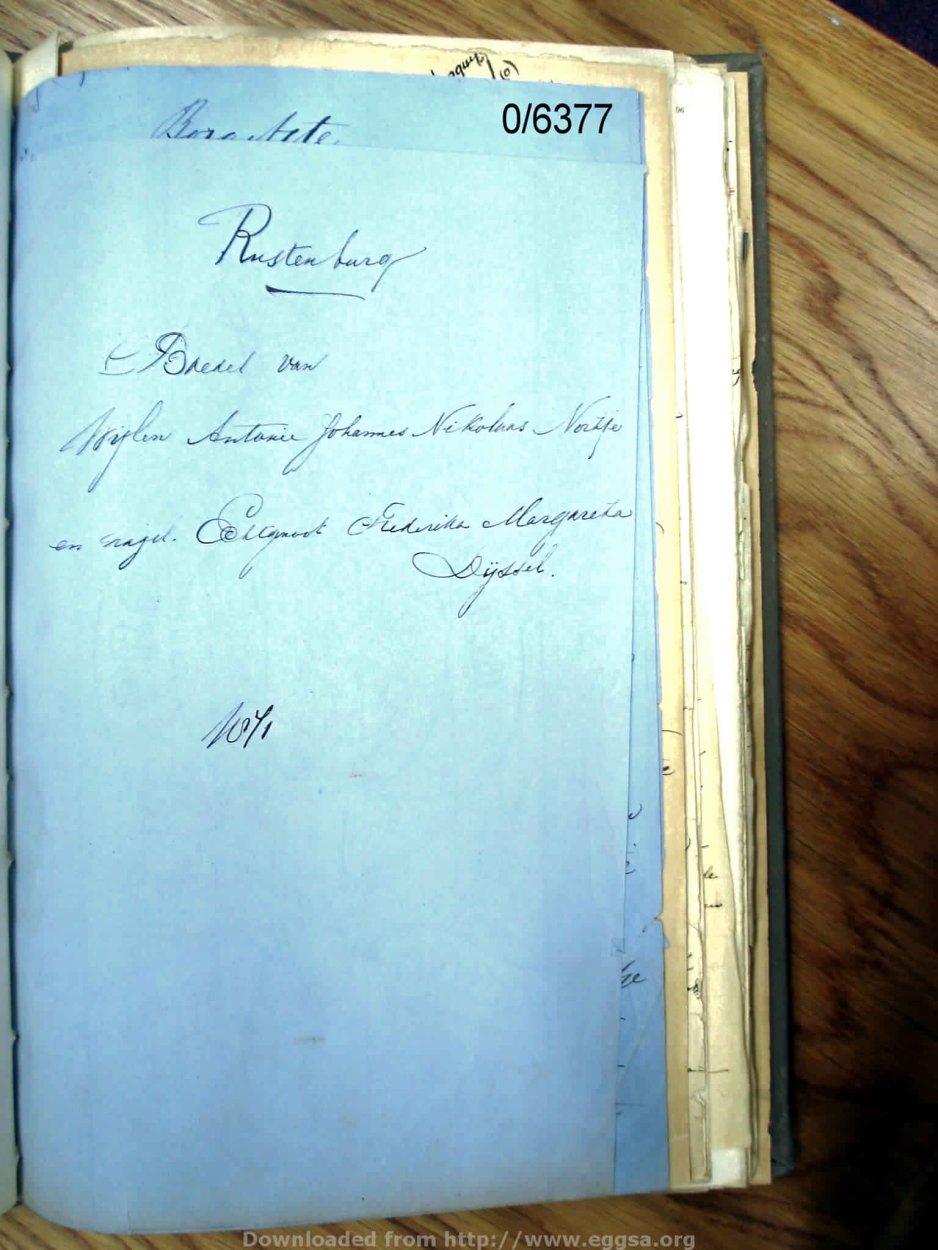 0/6377
Borg Acte.
Rustenburg
Boedel van
Wijlen Antonie Johannes Nikolaas Nortje
en nagel. Echtgenoot Frederika Margaretha
Dijssel.
Downloaded from http://www.eggsa.org